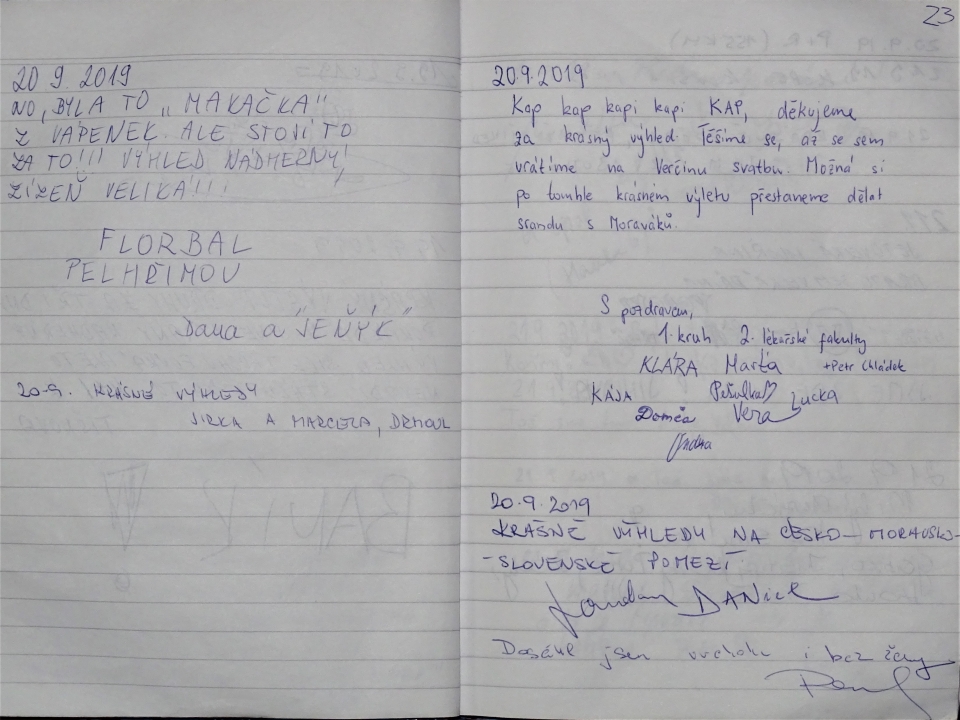 20 9. 2019
NO, BYLA TO „MAKAČKA"
Z VÁPENEK. ALE STOJÍ TO
ZA TO!!! VÝHLED NÁDHERNÝ,
ŽÍZEŇ VELIKÁ!!!
FLORBAL
PELHŘIMOV
Dana a "JENÝK"
20.9. KRÁSNÉ VÝHLEDY
JIRKA A MARCELA, DRMOUL
23
20.9.2019
Kap kap kapi kapi KAP, děkujeme
za krásný výhled. Těšíme se, až se sem
vrátíme na Verčinu svatbu. Možná si
po tomhle krásném výletu přestaneme dělat
srandu s Moraváků.
S pozdravem,
1. kruh 2. lékařské fakulty
KLÁRA Marťa +Petr Chládek
KÁJA Lucka
Domča Věra
20.9.2019
KRÁSNÉ VÝHLEDY NA ČESKO-MORAVSKO-
-SLOVENSKÉ POMEZÍ
DANIEL
Dosáhl jsem vrcholu i bez ženy